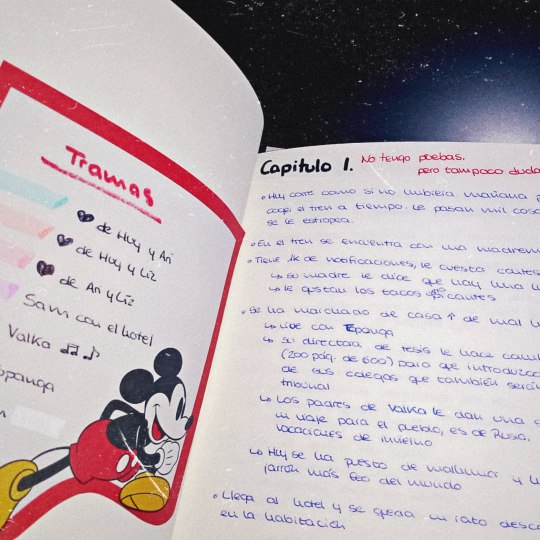 Tramas
de Huy y Ari
de Huy y Liz
de Ari y Liz
Sam con el hotel
Valka
Capítulo 1. No tengo pruebas,
pero tampoco duda
Huy corre como si no hubiera mañana p
coger el tren a tiempo. Le pasan mil cosa
se le estropea.
En el tren se encuentra con una
Tiene 1k de notificaciones, le cuesta
su madre le dice que hay una
le gustan los tacos picantes
Se ha marchado de casa de mal
vive con
su directora de tesis le hace
(200 pág. de 600) para que introduzca
de sus colegas que también serán
tribunal
Los padres de Valka le dan una
un viaje para el pueblo, es de Rusia.
vacaciones de invierno
Huy se ha puesto de
jarrón más feo del mundo
Llega al hotel y se queda un rato desc
en la habitación